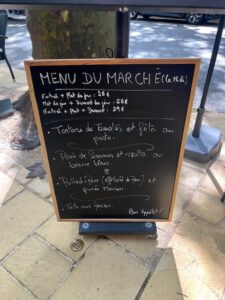 MENU DU MARCHÉ (Le Midi)
Entrée + Plat du jour : 25€
Plat du jour + Dessert du jour : 25€
Entrée + Plat + Dessert : 29€
- Tartare de Tomates et féta au
pesto.
- Pavé de Saumon et risotto au
beurre blanc.
ou
- Pulled-Pork (effiloché de Porc) et
purée Maison.
- Tarte aux
Bon Appétit !